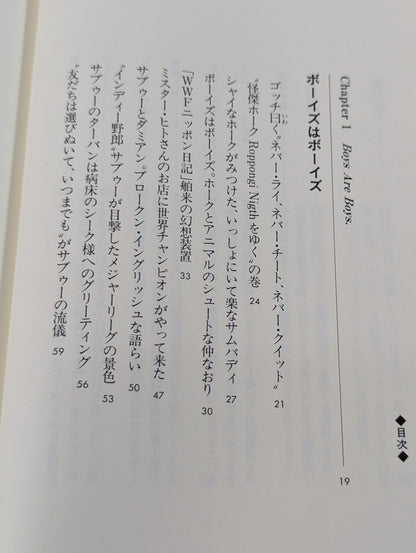 ◆目次◆
Chapter 1 Boys Are Boys.
ボーイズはボーイズ 19
ゴッチ曰く〝ネバー・ライ、ネバー・チート、ネバー・クイット〟 21
いわ
〝怪傑ホーク Roppongi Nigth をゆく〟の巻 24
シャイなホークがみつけた、いっしょにいて楽なサムバディ 27
ボーイズはボーイズ。ホークとアニマルのシュートな仲なおり 30
「WWFニッポン日記」舶来の幻想装置 33
ミスター・ヒトさんのお店に世界チャンピオンがやって来た 47
サブゥーとダミアン。ブロークン・イングリッシュな語らい 50
〝インディー野郎〟サブゥーが目撃したメジャーリーグの景色 53
サブゥーのターバンは病床のシーク様へのグリーティング 56
〝友だちは選びぬいて、いつまでも〟がサブゥーの流儀 59